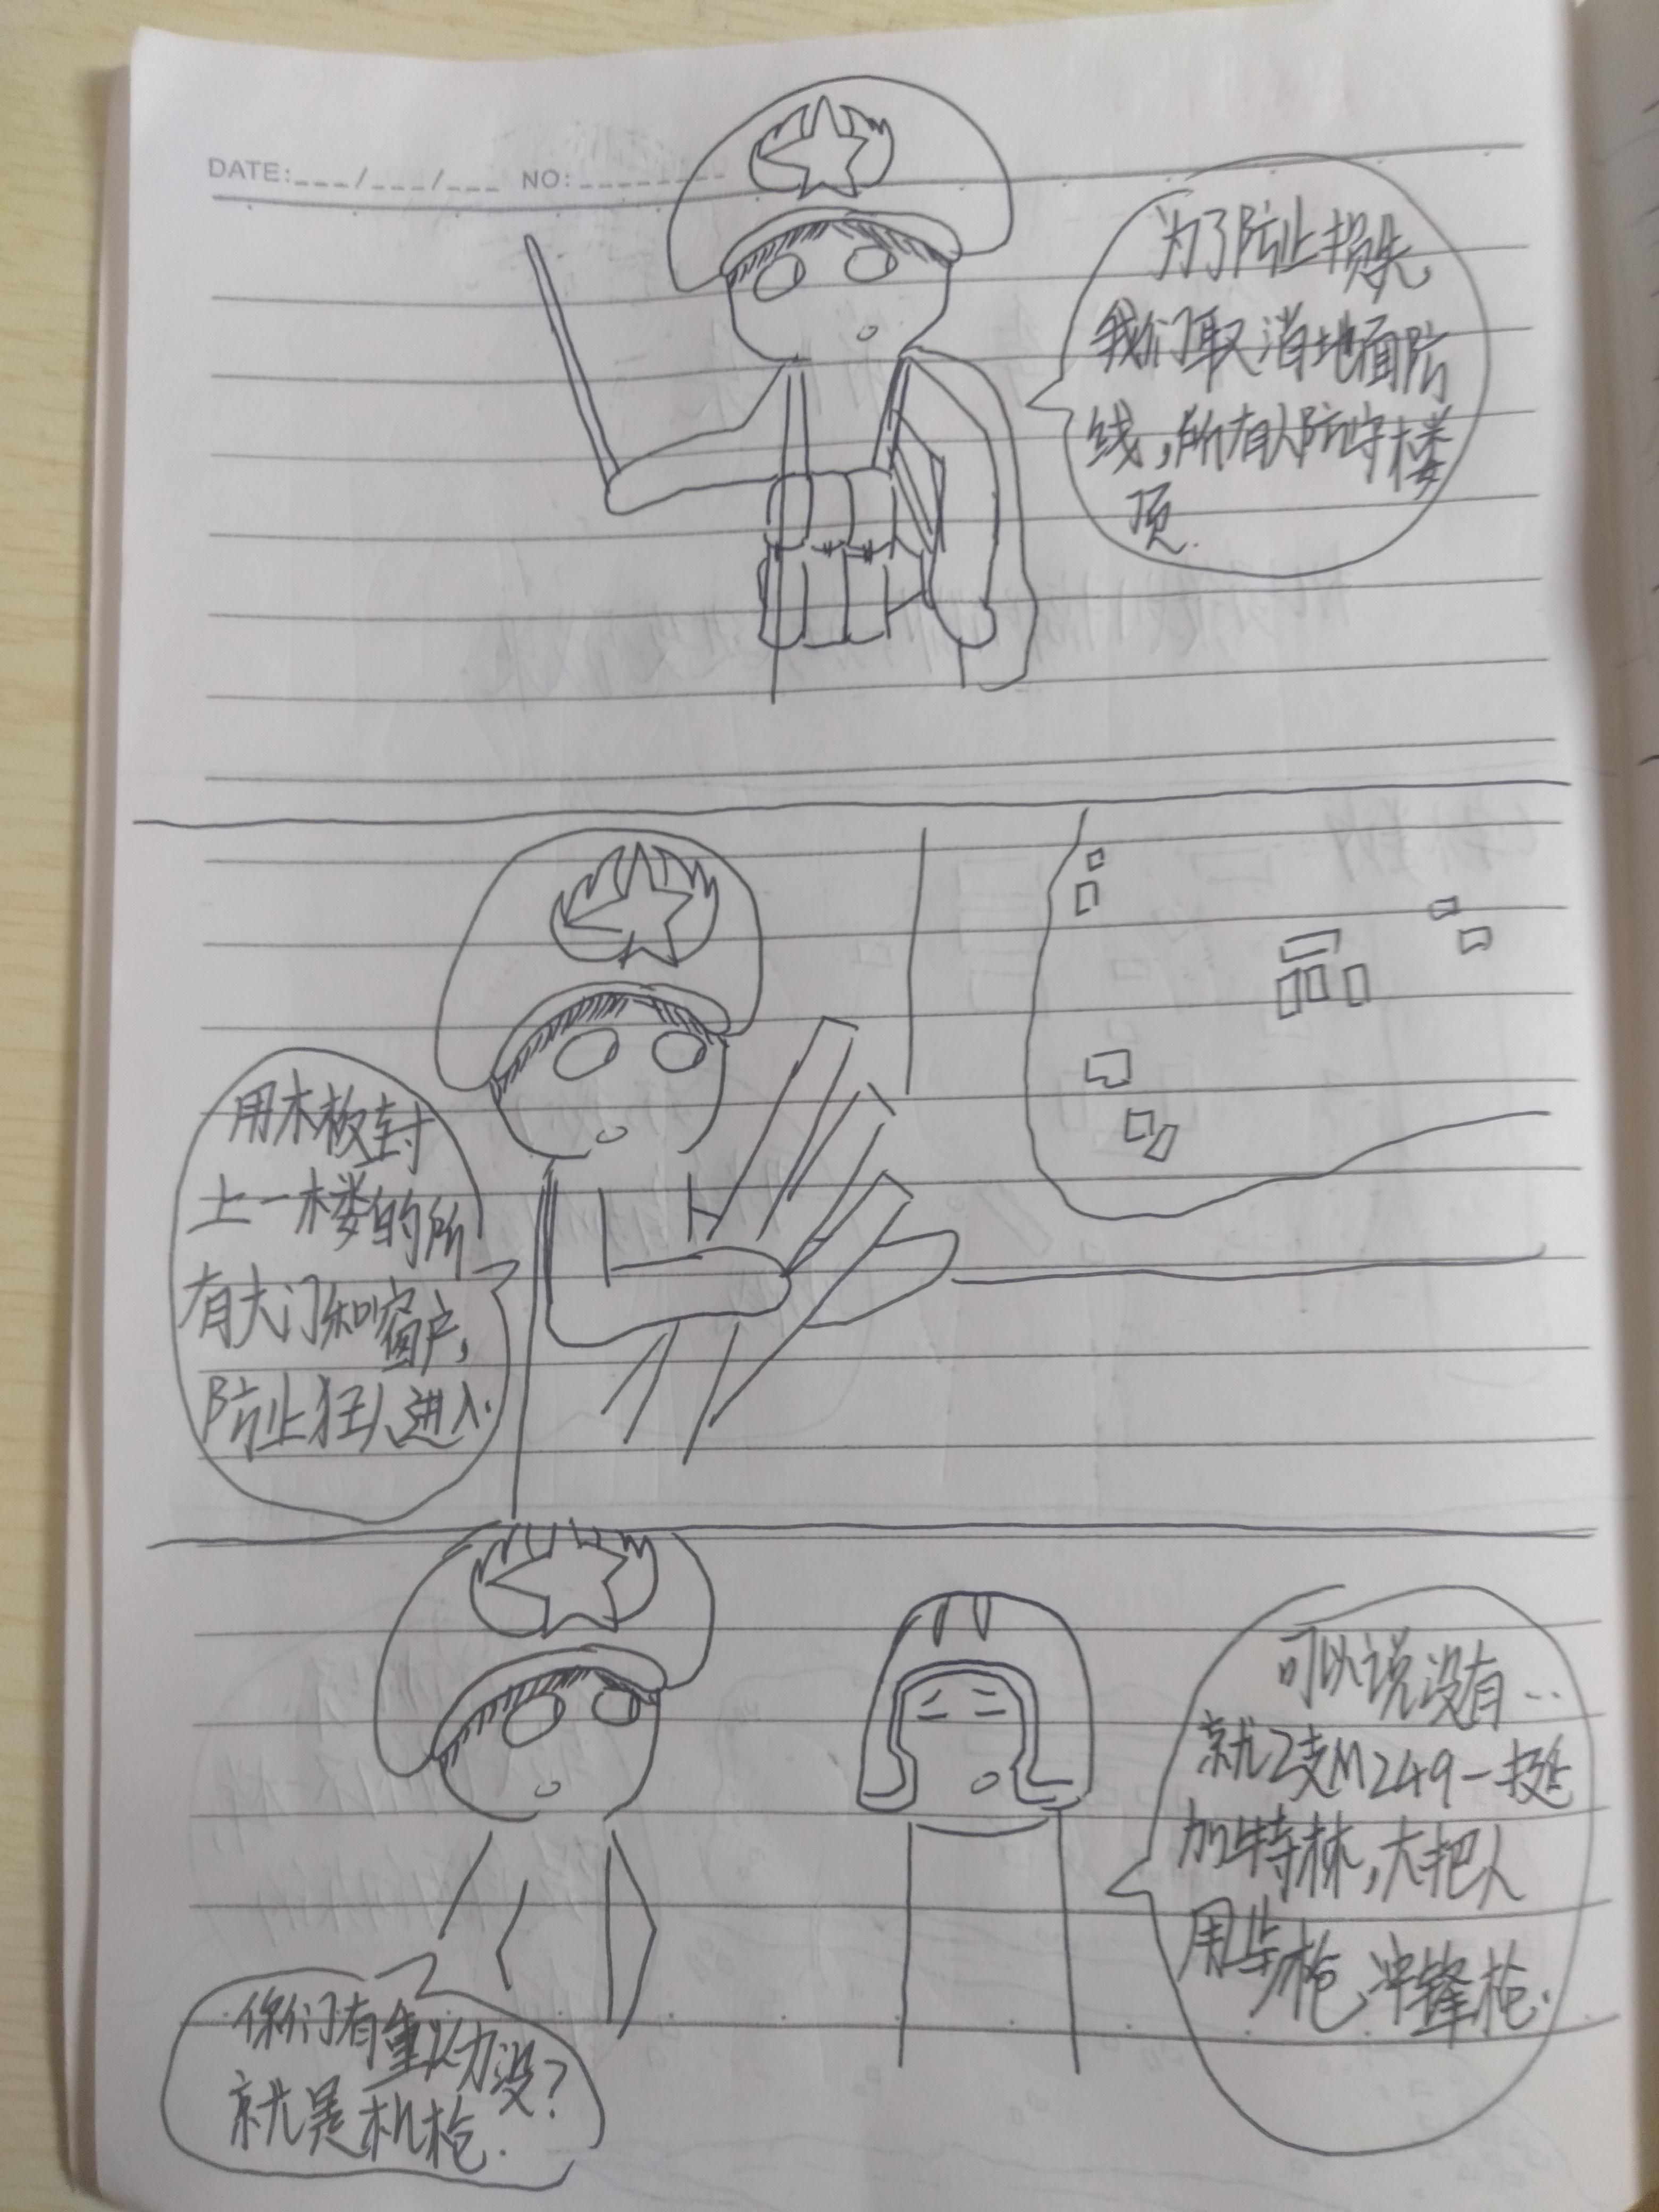 DATE:___/___/___ NO:________
为了防止损失
我们取消地面防
线,所有人防守楼
顶.
用木板封
上一楼的所
有大门和窗户,
防止狂人进入.
可以说没有...
就2支M249一挺
加特林,大把人
用步枪冲锋枪.
你们有重火力没?
就是机枪.